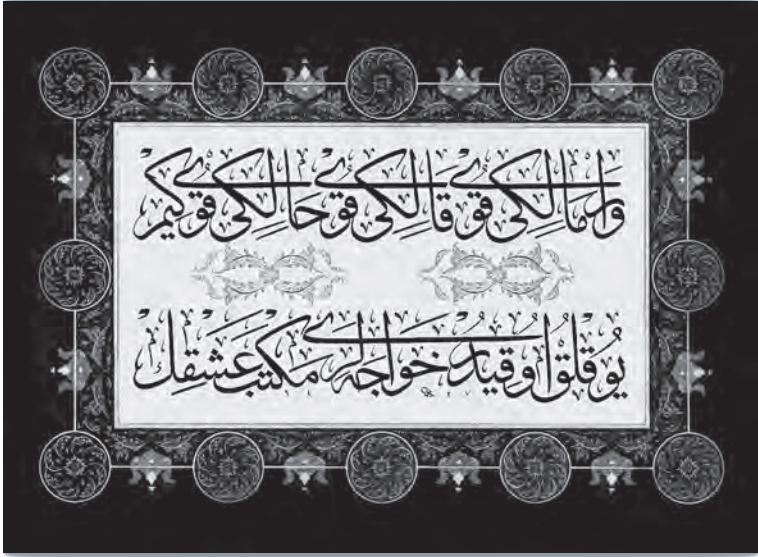 وار مالكى قوى قالكى قوى حالكى قوى كيم
يوقلق اوقيدر خواجه لرى مكتب عشقك